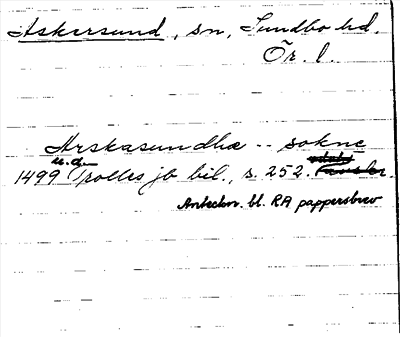 Askersund, sn, Sundbo hd.
Ör. l.
Arskasundha -- sokne
u.d.
1499 Trolles jb bil., s. 252.
Anteckn. bl. RA pappersbrev